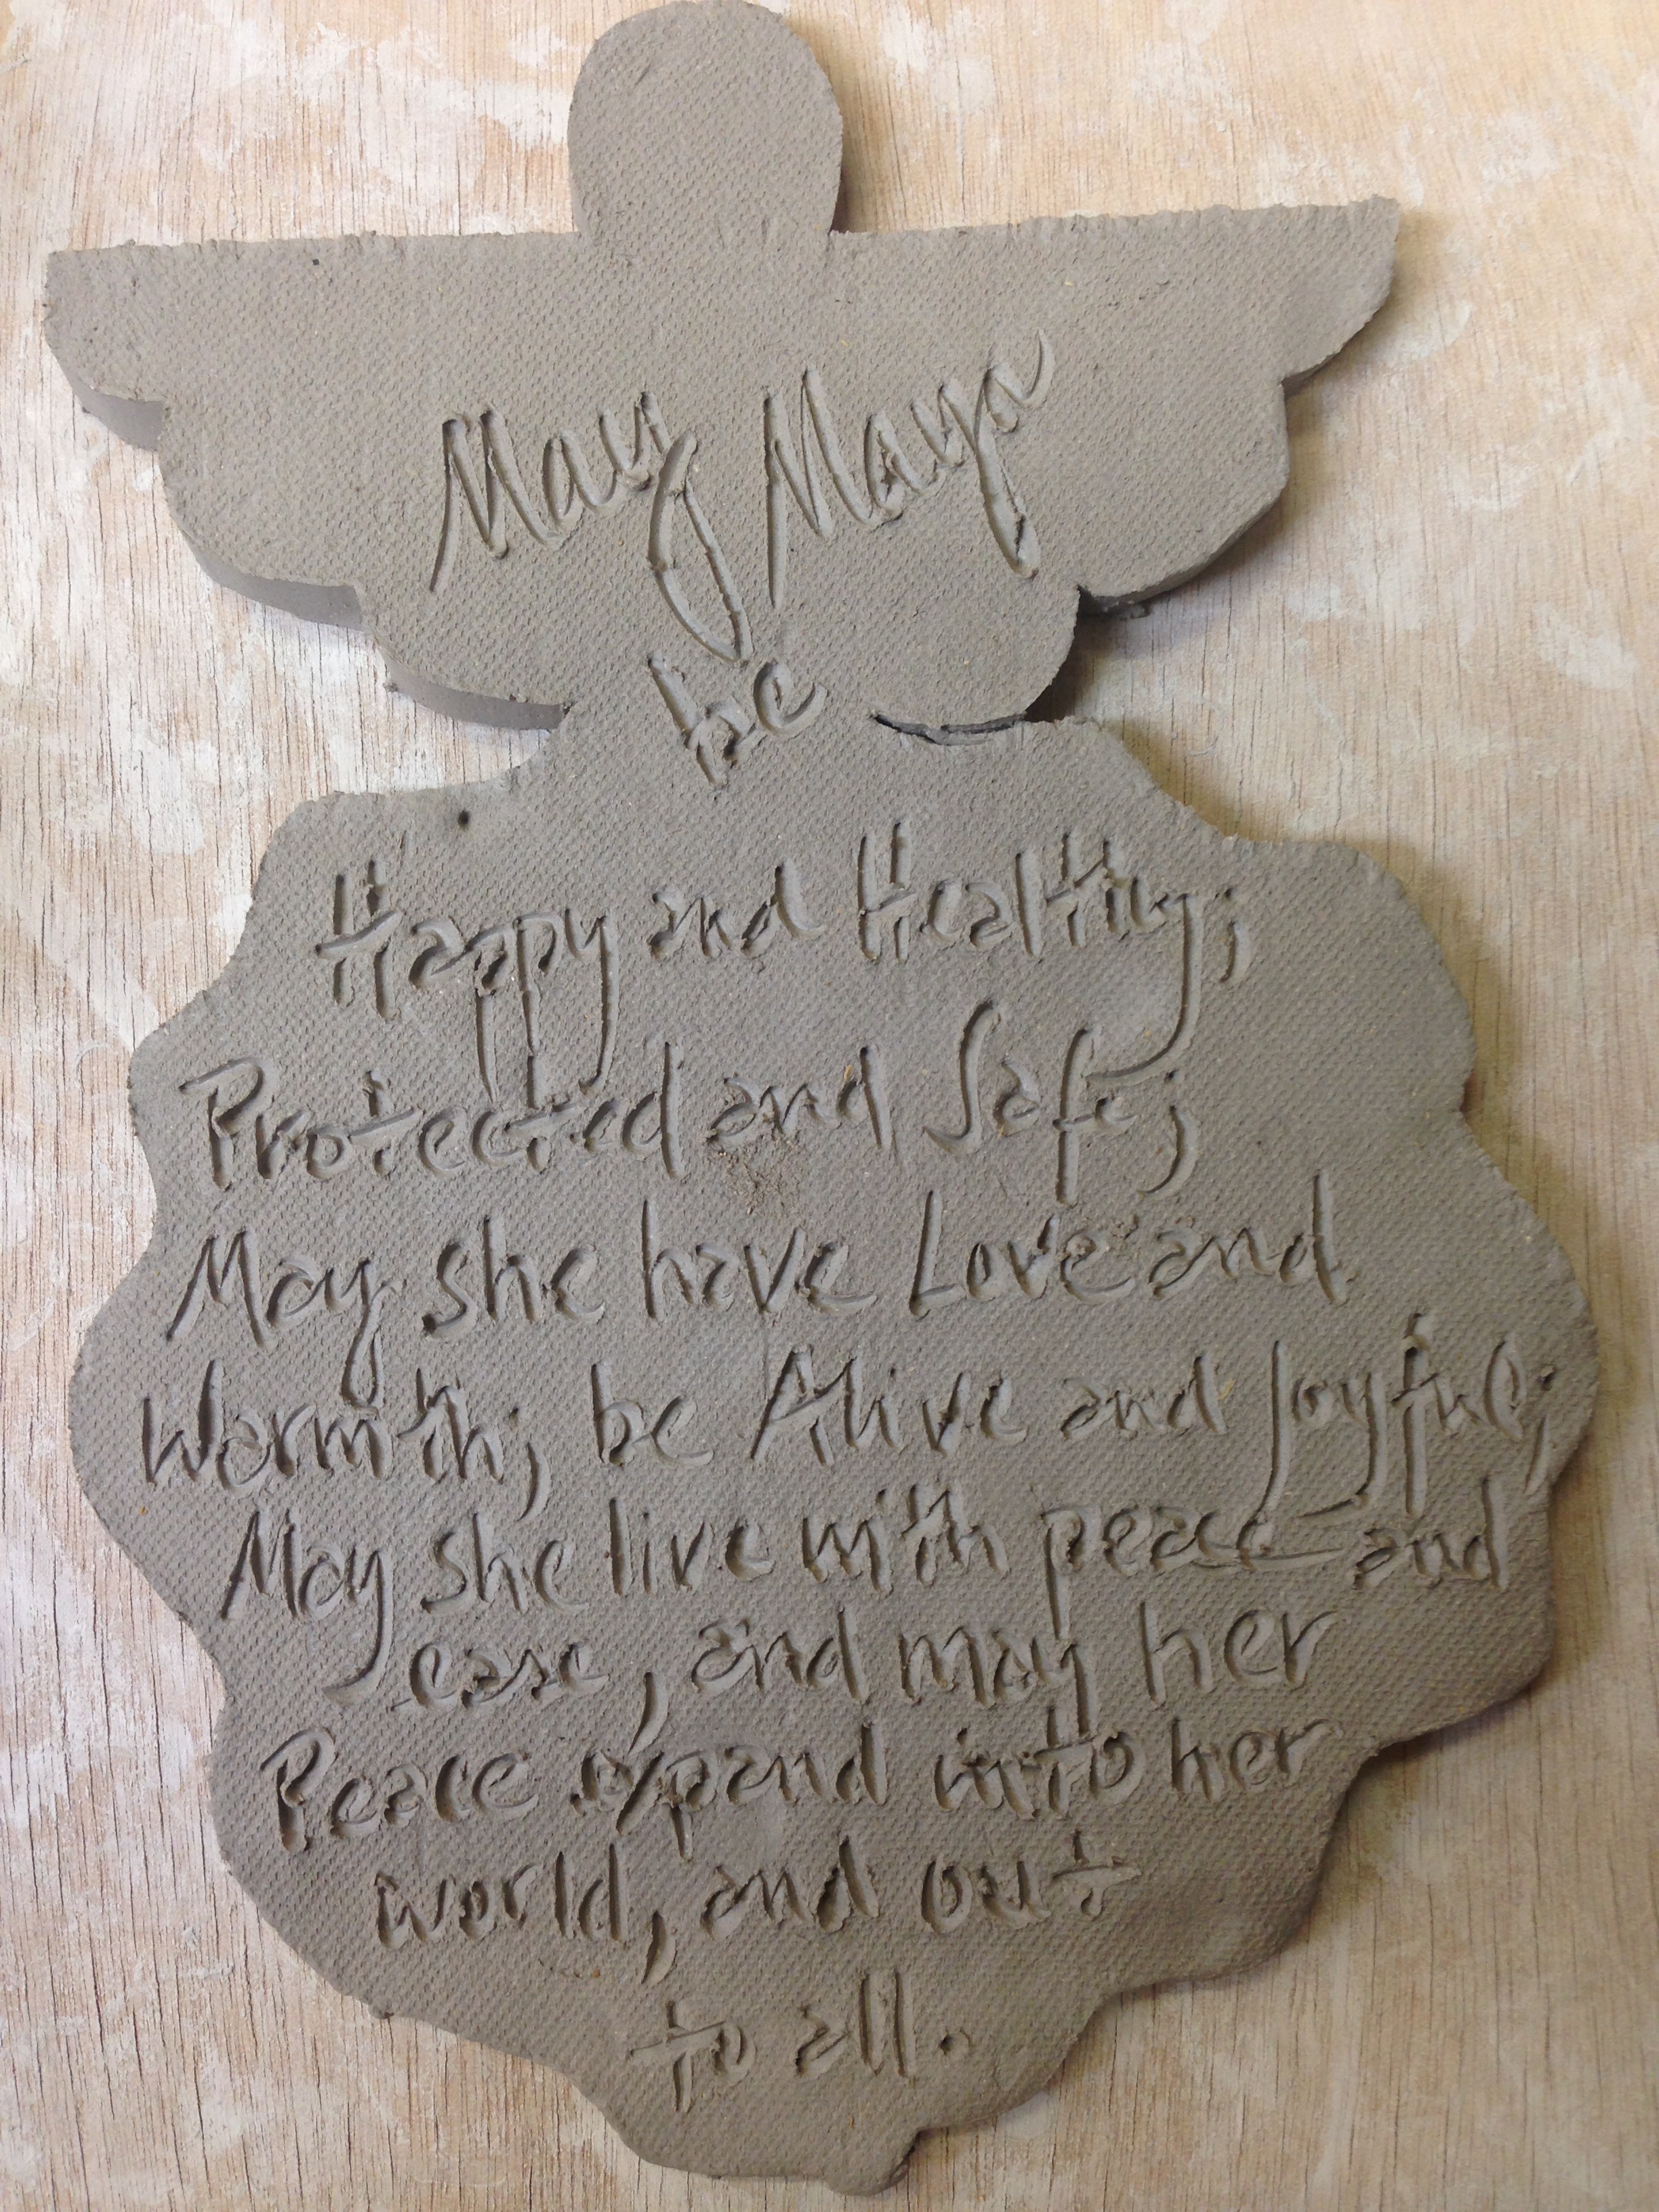 May Maya
be
Happy and Healthy;
Protected and Safe;
May she have Love and
Warmth; be Alive and Joyful;
May she live with peace and
ease, and may her
Peace expand into her
world, and out
to all.